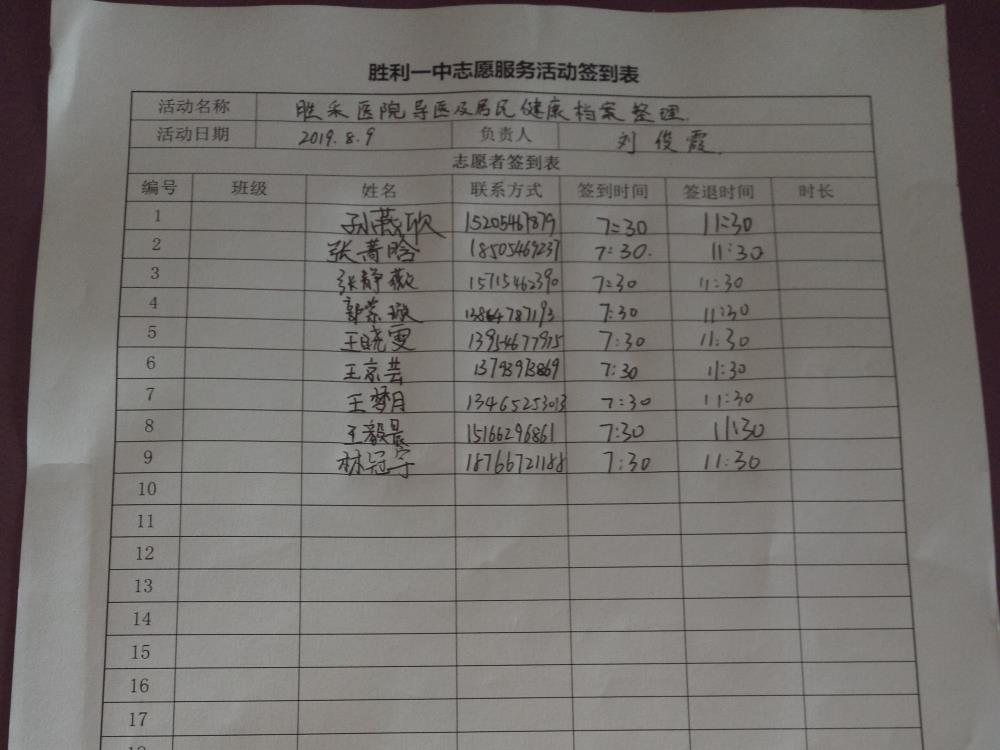 胜利一中志愿服务活动签到表
活动名称 胜采医院导医及居民健康档案整理
活动日期 2019.8.9 负责人 刘俊霞
志愿者签到表
编号 班级 姓名 联系方式 签到时间 签退时间 时长
1 孙燕欣 15205467879 7:30 11:30
2 张菁晗 18505469237 7:30. 11:30
3 张静薇 15715462390 7:30 11:30
4 郭紫璇 13864787193 7:30 11:30
5 王晓雯 13954677975 7:30 11:30
6 王京芸 13793973869 7:30 11:30
7 王梦月 13465253013 7:30 11:30
8 王毅晨 15166296861 7:30 11:30
9 林冠宇 18766721188 7:30 11:30
10
11
12
13
14
15
16
17